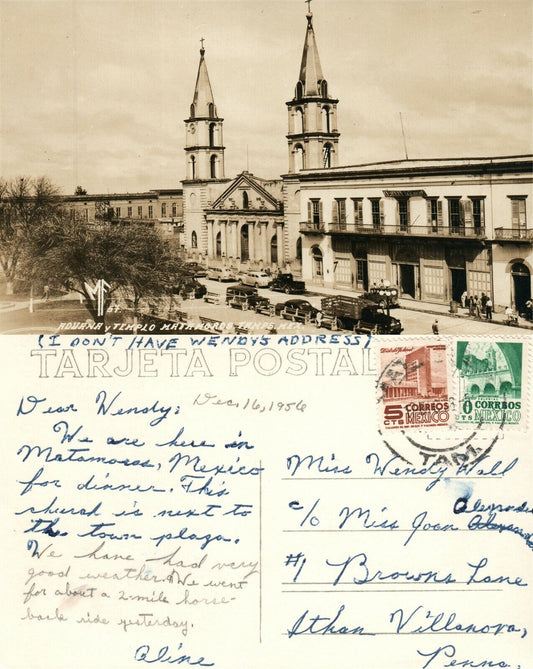 MF
ADUANA y TEMPLO MATAMOROS, TAMPS. MEX.
(I DON'T HAVE WENDYS ADDRESS)
TARJETA POSTAL
Dear Wendy:
Dec. 16, 1956
We are here in
Matamoras, Mexico
for dinner. This
church is next to
the town plaza.
We have had very
good weather. We went
for about a 2-mile horse-
back ride yesterday.
Aline
5 CORREOS
CTS MEXICO
CORREOS
MEXICO
TAM
Miss Wendy Hall
c/o Miss Joan
#1 Browns Lane
Ithan Villanova,
Penna.